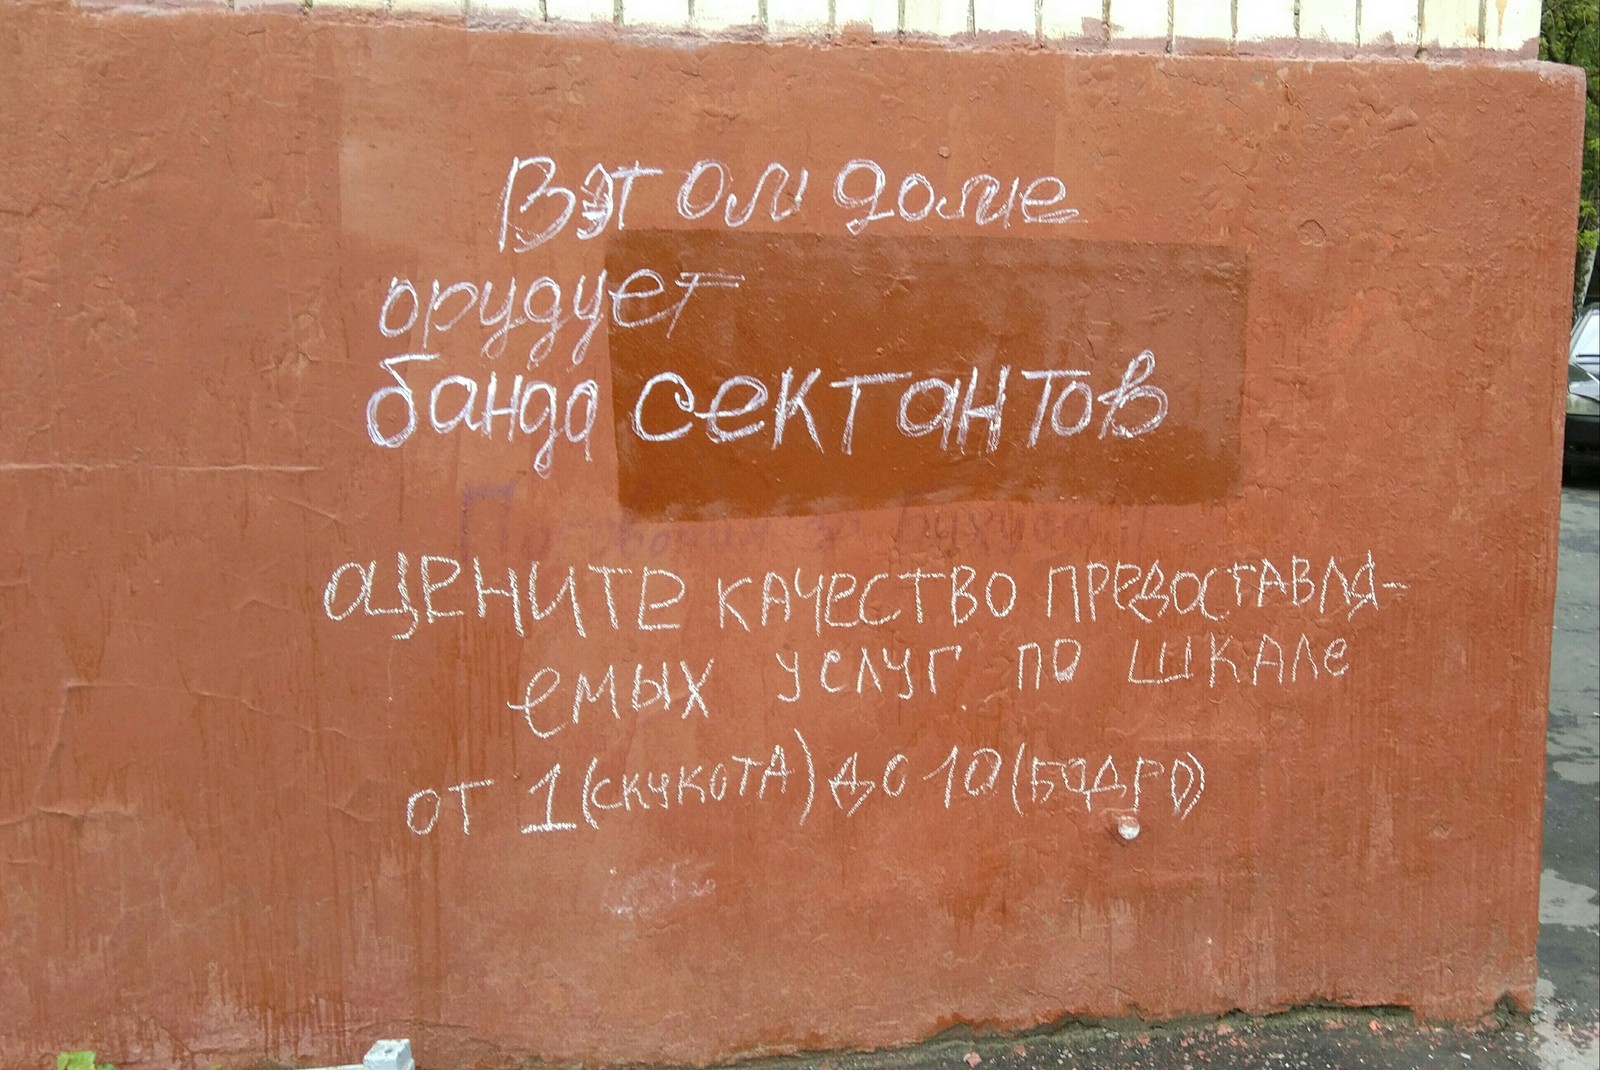 В этом доме
орудует
банда сектантов
оцените качество предоставля-
емых услуг по шкале
от 1 (скукота) до 10 (бодро)